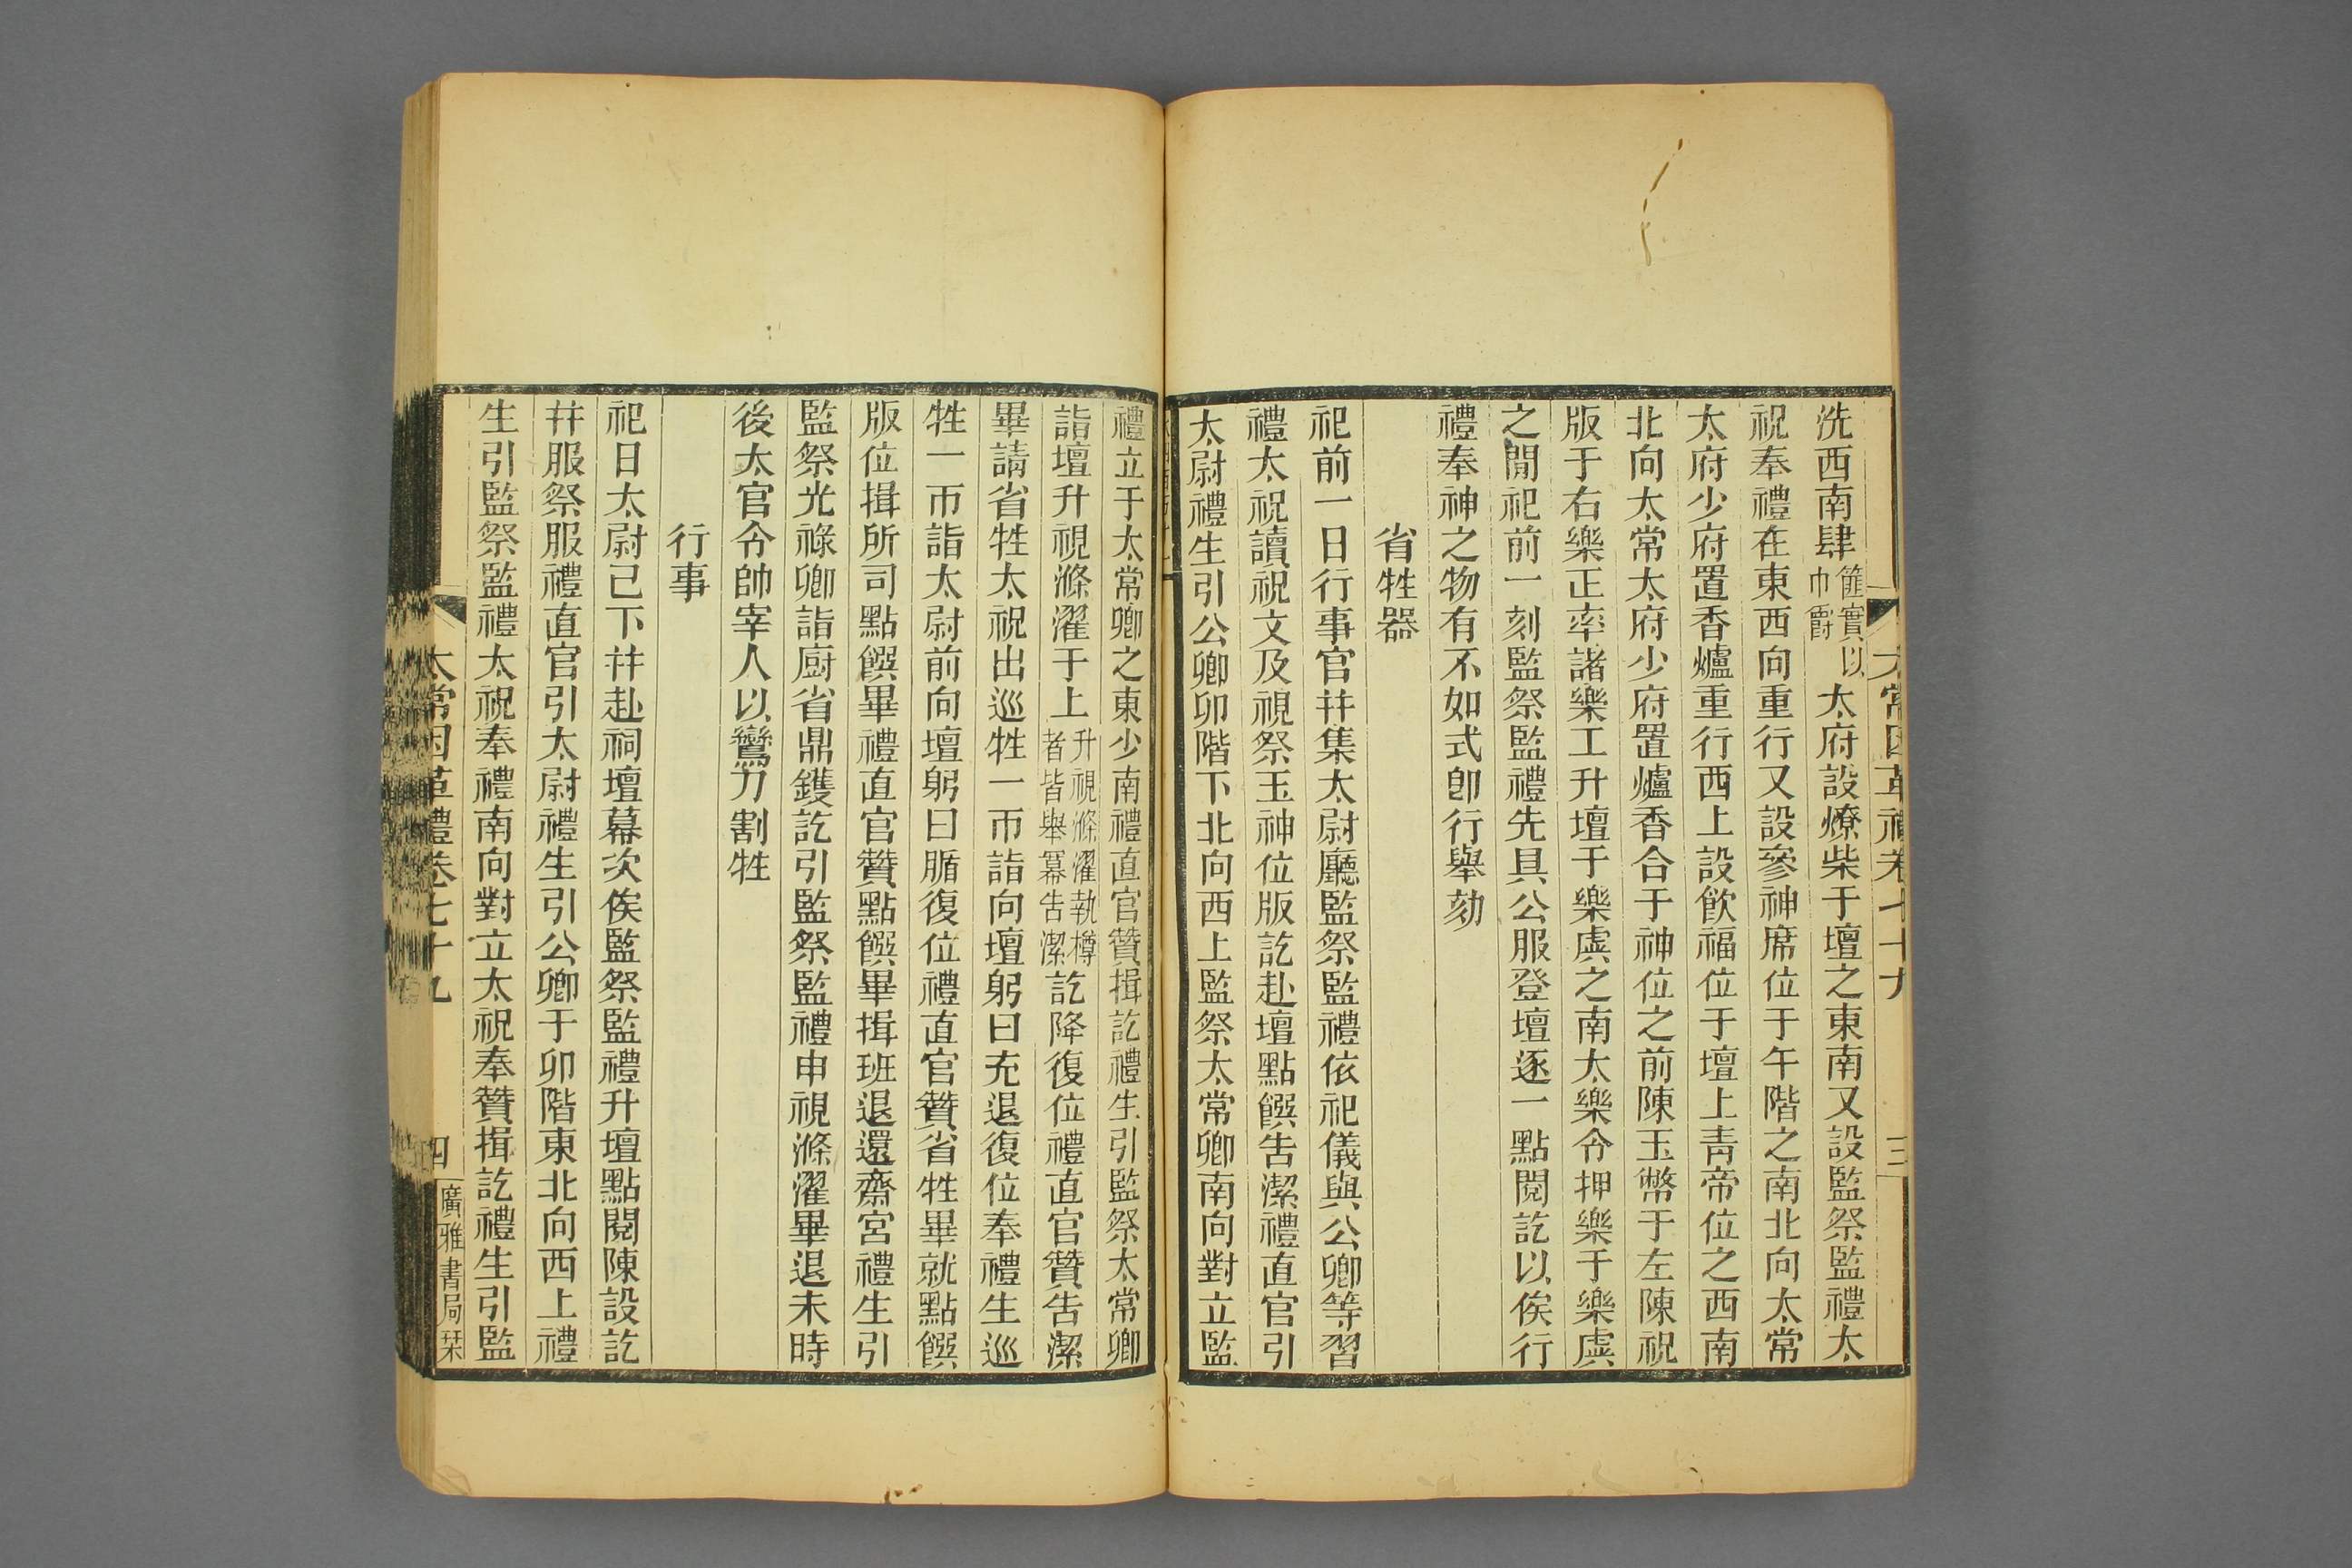 太常因革禮卷七十九 三
洗西南肆篚實以巾爵太府設燎柴于壇之東南又設監祭監禮太
祝奉禮在東西向重行又設參神席位于午階之南北向太常
太府少府置香爐重行西上設飲福位于壇上青帝位之西南
北向太常太府少府置爐香合于神位之前陳玉幣于左陳祝
版于右樂正率諸樂工升壇于樂虡之南太樂令押樂于樂虡
之閒祀前一刻監祭監禮先具公服登壇逐一點閱訖以俟行
禮奉神之物有不如式卽行舉劾
省牲器
祀前一日行事官幷集太尉廳監祭監禮依祀儀與公卿等習
禮太祝讀祝文及視祭玉神位版訖赴壇點饌告潔禮直官引
太尉禮生引公卿卯階下北向西上監祭太常卿南向對立監
禮立于太常卿之東少南禮直官贊揖訖禮生引監祭太常卿
詣壇升視滌濯于上升視滌濯執樽者皆舉冪告潔訖降復位禮直官贊告潔
畢請省牲太祝出巡牲一帀詣向壇躬曰充退復位奉禮生巡
牲一帀詣太尉前向壇躬曰腯復位禮直官贊省牲畢就點饌
版位揖所司點饌畢禮直官贊點饌畢揖班退還齋宮禮生引
監祭光祿卿詣廚省鼎鑊訖引監祭監禮申視滌濯畢退未時
後太官令帥宰人以鸞刀割牲
行事
祀日太尉已下幷赴祠壇幕次俟監祭監禮升壇點閱陳設訖
幷服祭服禮直官引太尉禮生引公卿于卯階東北向西上禮
生引監祭監禮太祝奉禮南向對立太祝奉贊揖訖禮生引監
太常因革禮卷七十九 四 廣雅書局栞